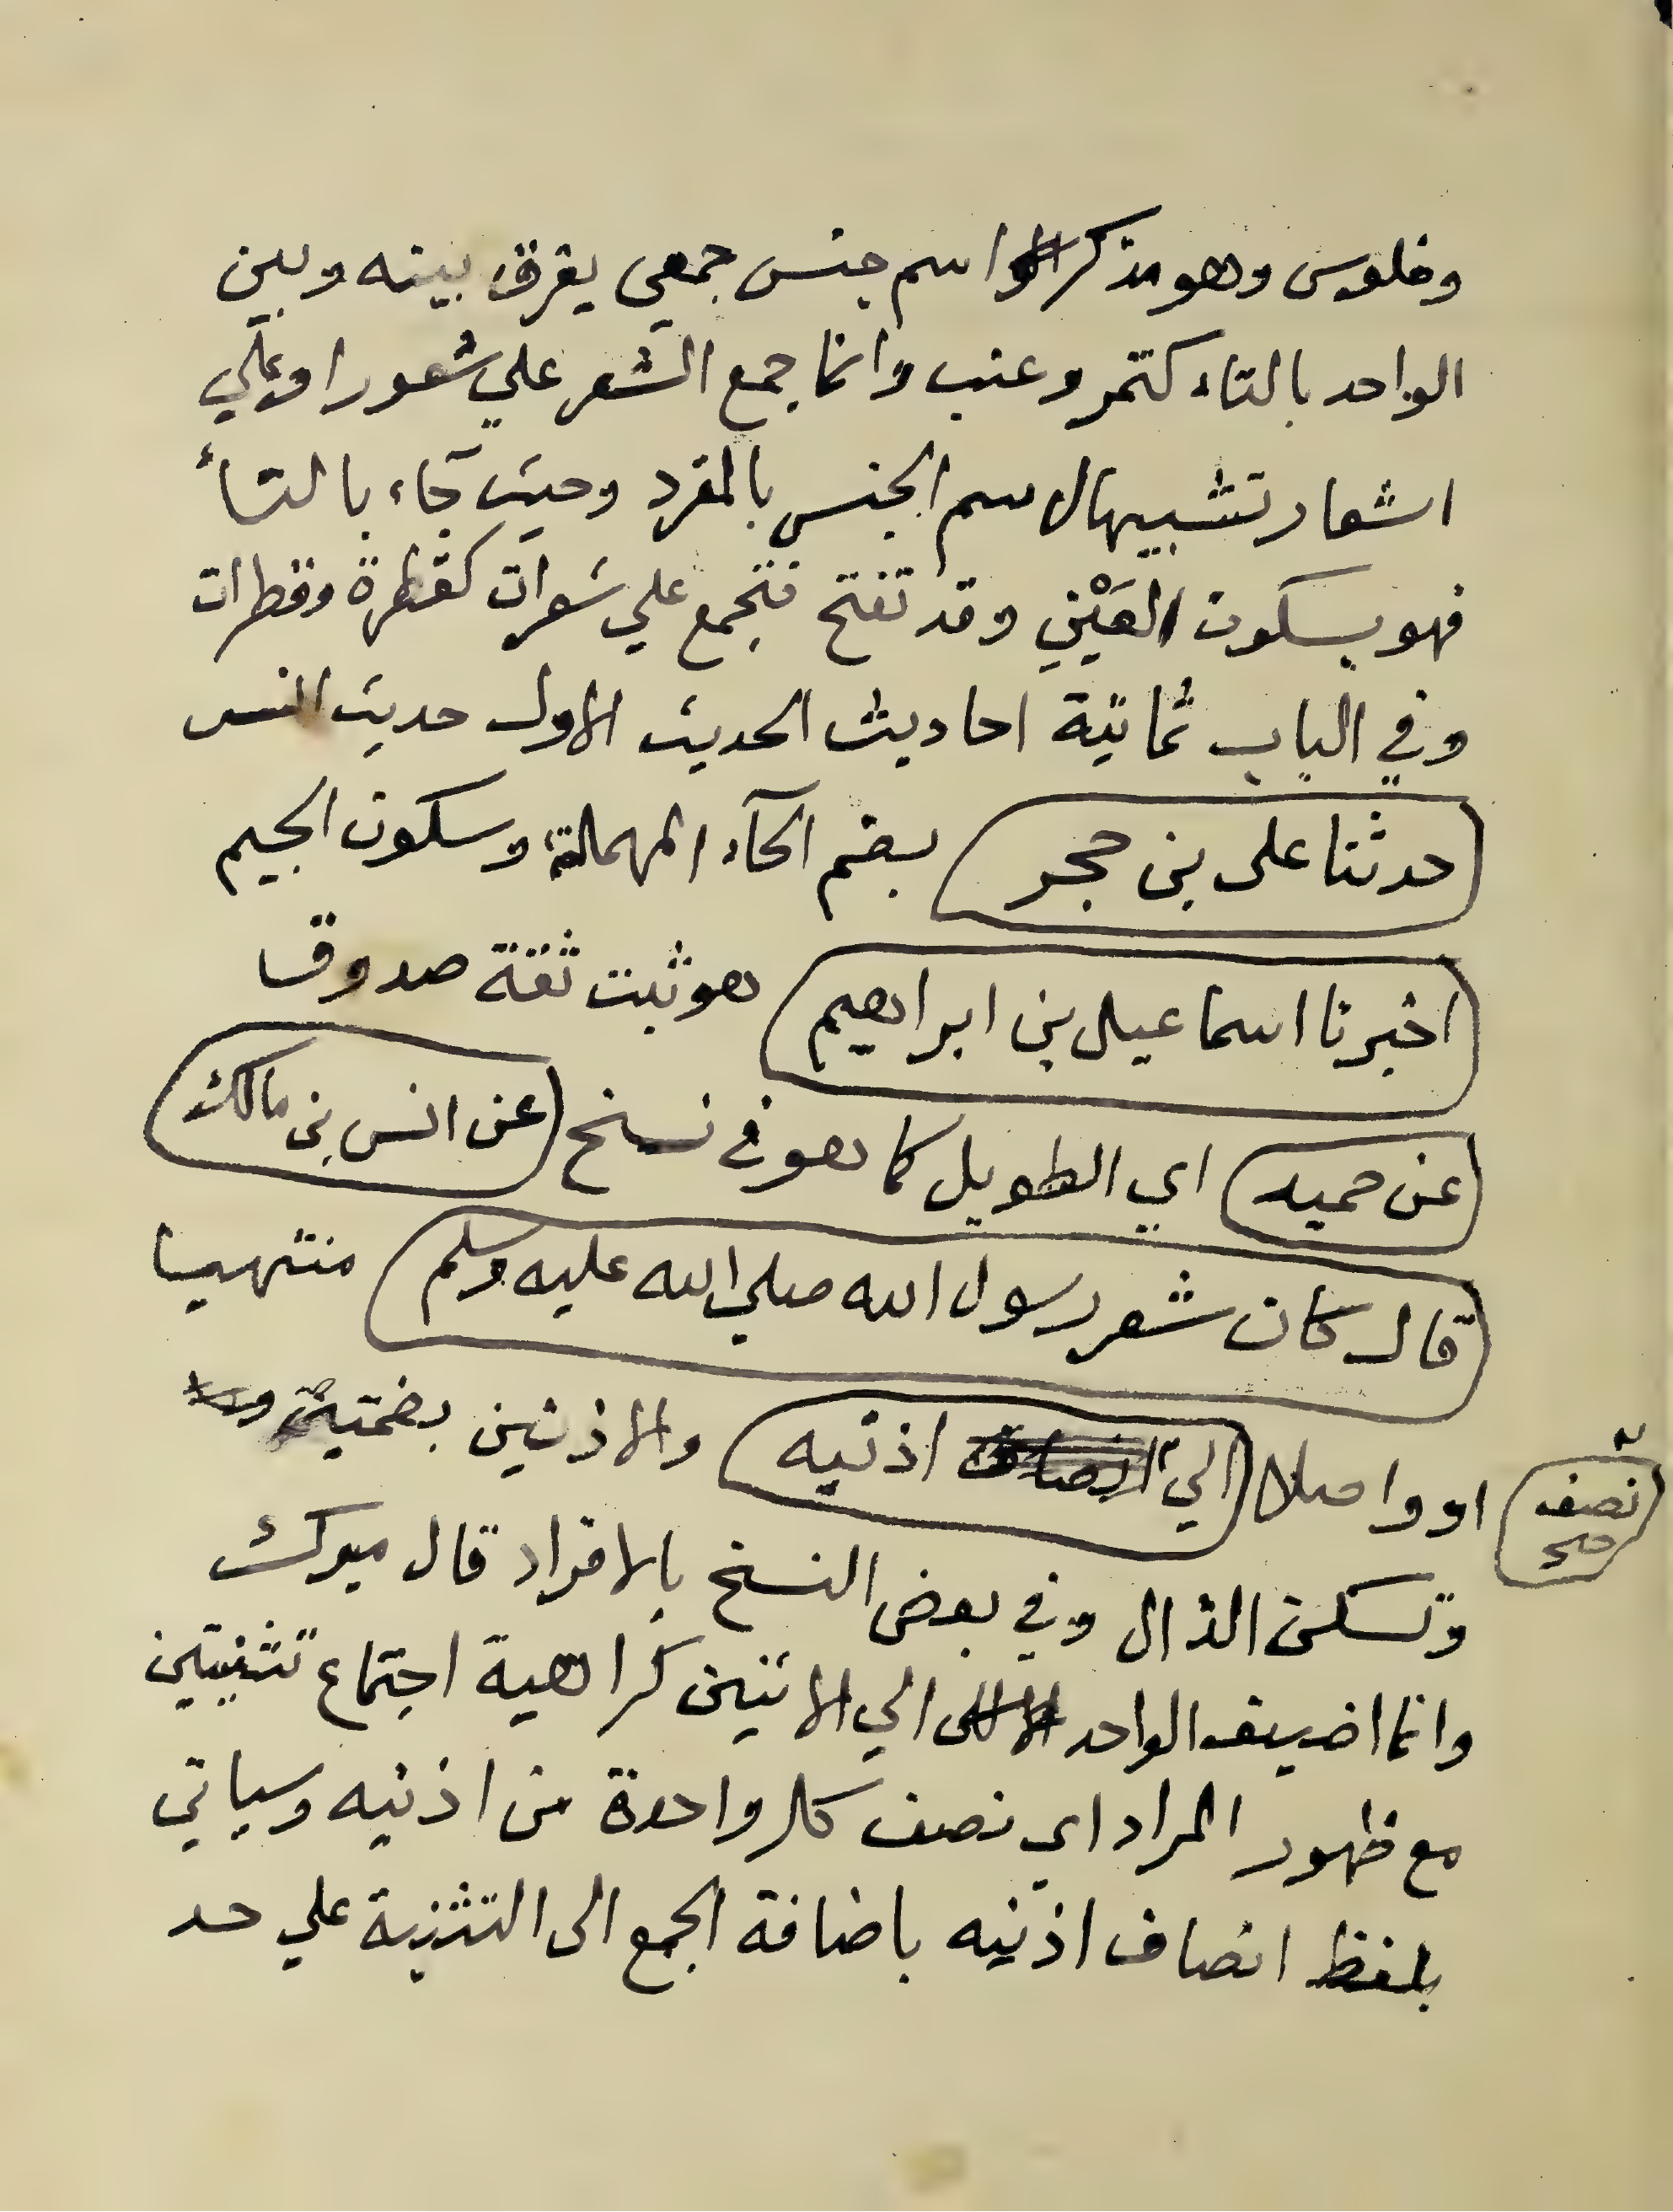 وفلوس وهو مذكر اسم جنس جمعي يفرق بينه وبين
الواحد بالتاء كتمر وعنب وانما جمع الشعر علي شعور او علي
اشعار تشبيها لاسم الجنس بالمفرد وحيث جاء بالتاء
فهو بسكون العَيْنِ وقد تفتح فتجمع علي شعرات كقطرة وقطرات
وفي الباب ثمانية احاديث الحديث الاول حديث انس
حدثنا على بن حجر بضم الحآء المهملة وسكون الجيم
اخبرنا اسماعيل بن ابراهيم هو ثبت ثقة صدوق
عن حميد اي الطويل كما هو في نسخ عن انس بن مالك
قال كان شعر رسول الله صلي الله عليه وسلم منتهيا
او واصلا الي اذنيه والاذنين بضمتين
نصف
صح
وتسكن الذال وفي بعض النسخ بالافراد قال ميرك
وانما اضيف الواحد الي الاثنين كراهية اجتماع تثنيتين
مع ظهور المراد اي نصف كل واحدة من اذنيه وسياتي
بلفظ انصاف اذنيه باضافة الجمع الى التثنية علي حد